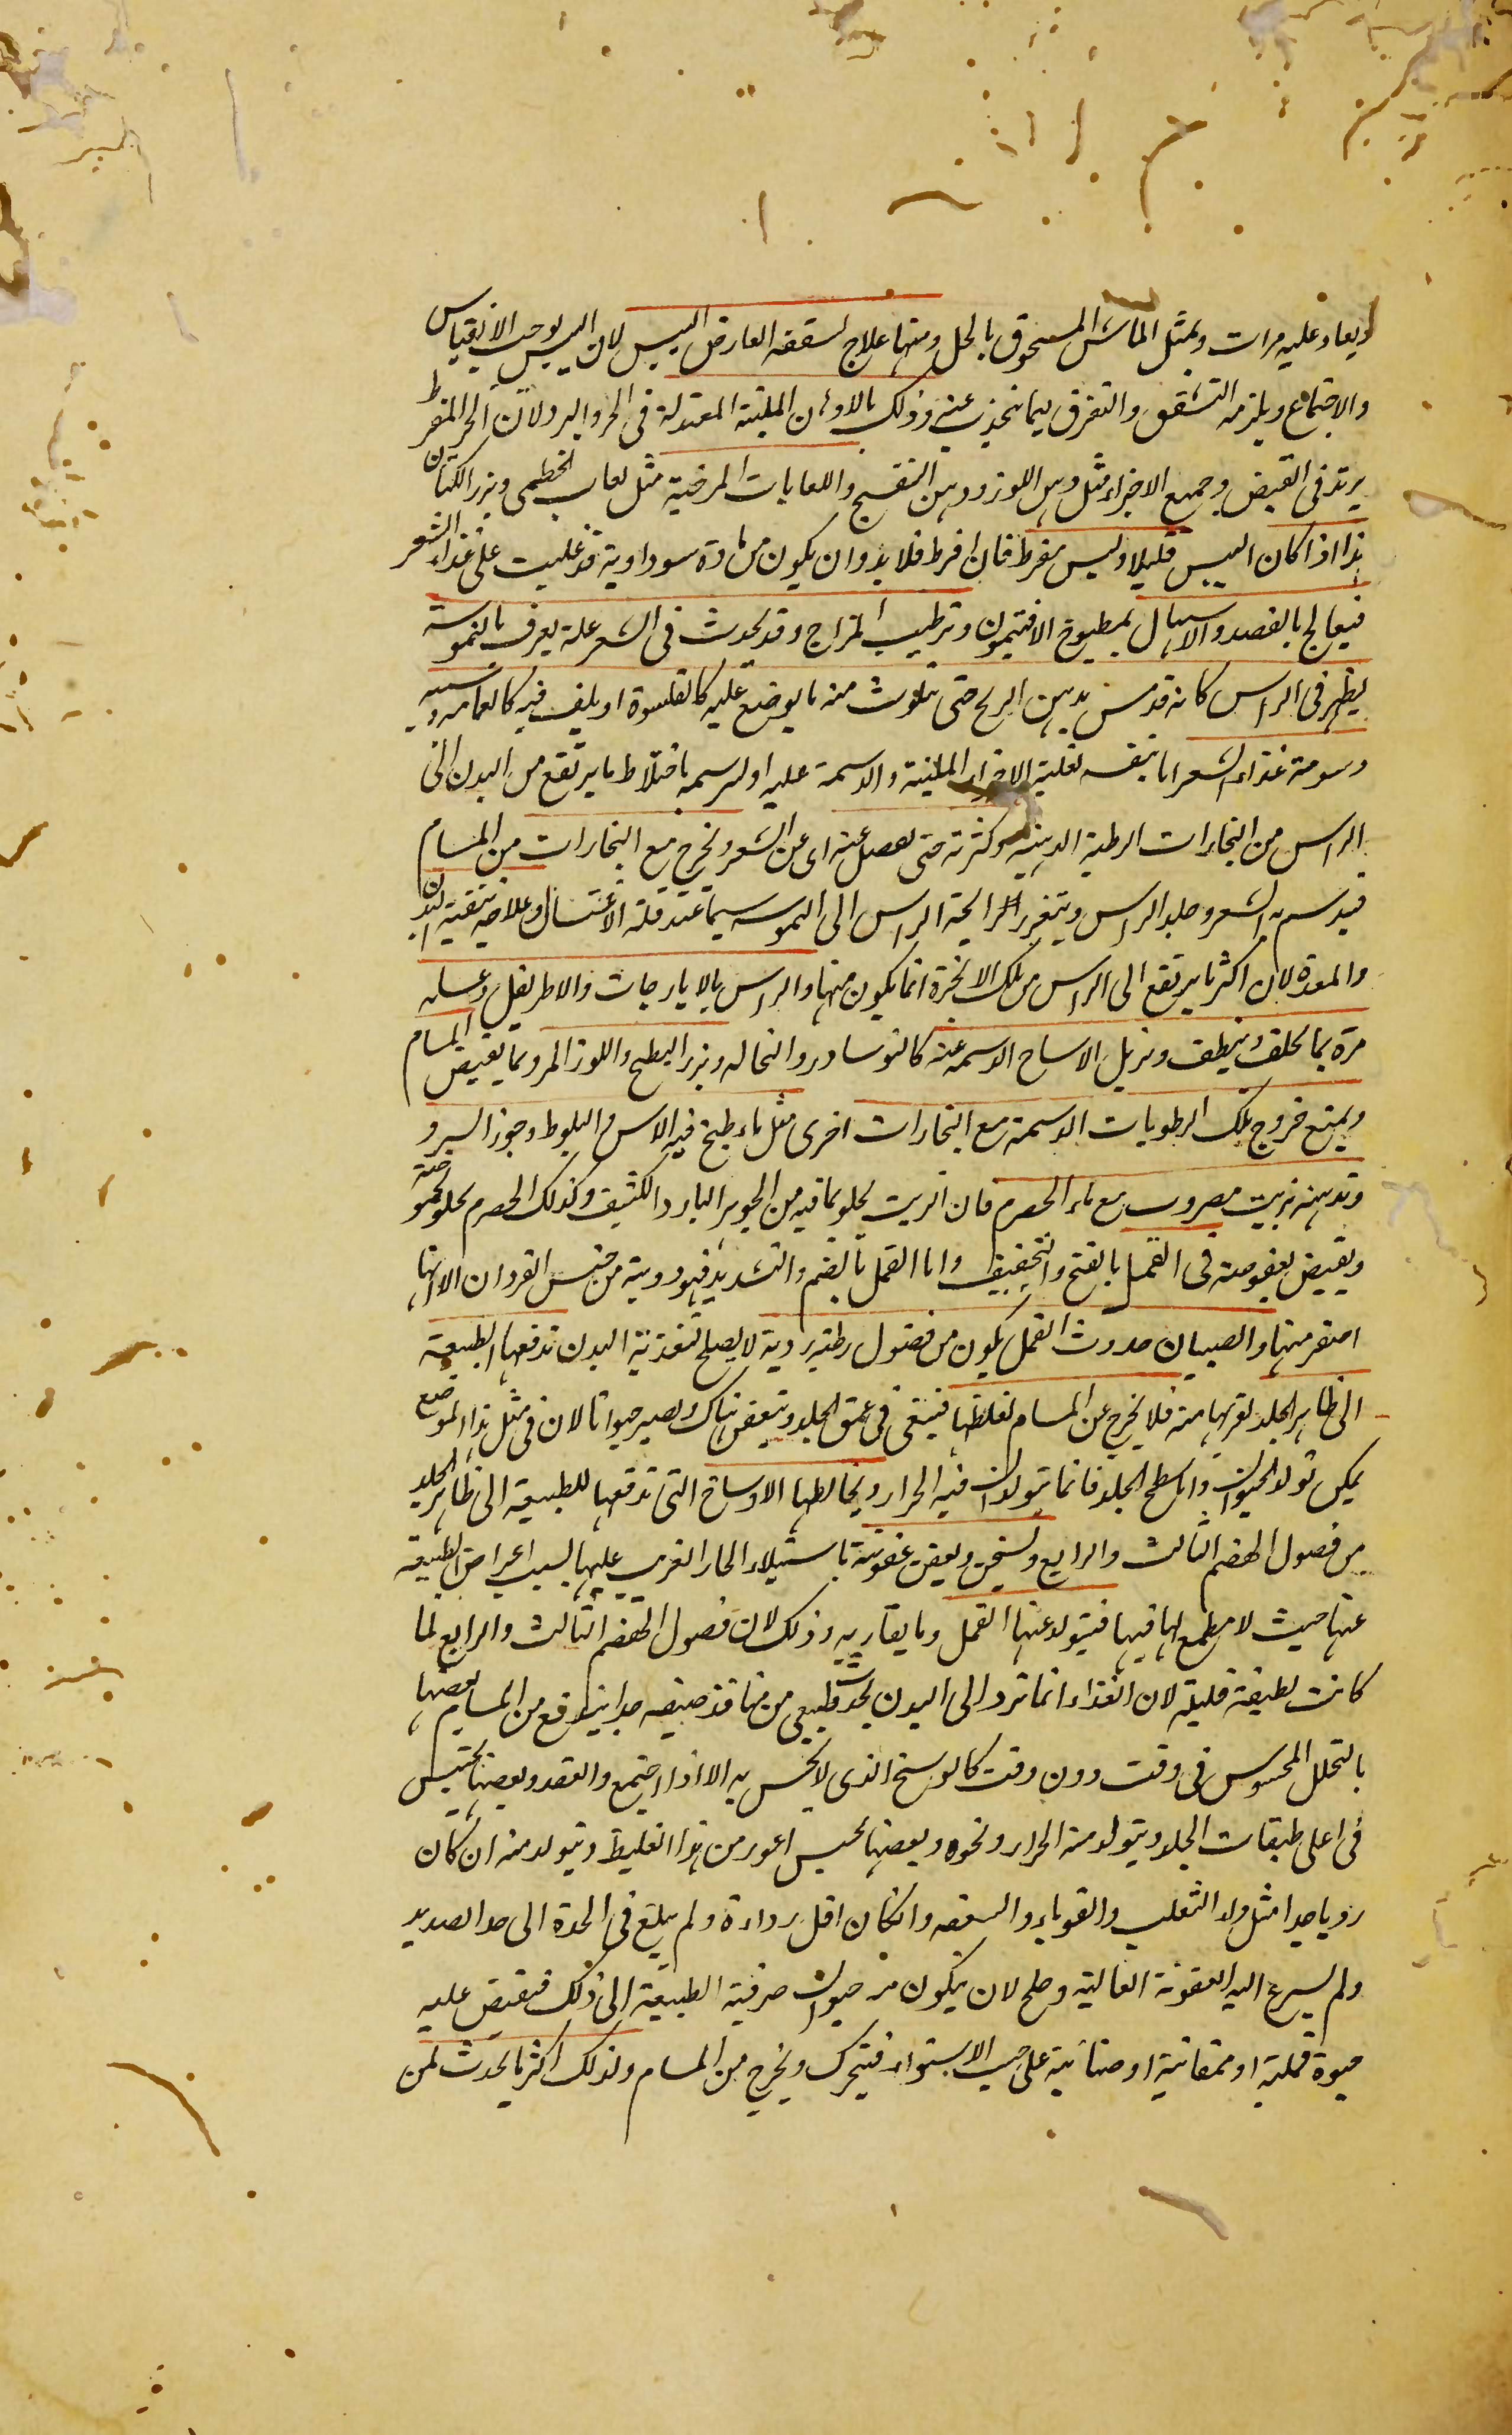 ويعاد عليه مرات وبمثل الماش المسحوق بالخل ومنها علاج لشققه العارض اليبس لان اليبس يوجب الانقباض
والاجتماع ويلزمه التشقق والتفرق لما ينجذب عنه وذلك بالادهان الملينة المعتدلة فى الحر والبرد لان الحر المفرط
يزيد فى القبض وجميع الاجزاء مثل دهن اللوز ودهن البنفسج واللعابات المرخية مثل لعاب الخطمى وبزر الكتان
هذا اذا كان اليبس قليلا وليس مفرط فان افرط فلا بد وان يكون من مادة سوداوية قد غلبت على غذاء الشعر
فيعالج بالفصد والاسهال بمطبوخ الافتيمون وترطيب المزاج وقد يحدث فى الشعر علة يعرف بالنموسة
يظهر فى الراس كانه قد مس بدهن الريح حتى يتلوث منه ما يوضع عليه كالقلنسوة او يلف فيه كالعمامه وسببه
دسومة غذاء الشعر اما بنفسه لغلبة الاجزاء الملينة والدسمة عليه او لدسمه باختلاط ما يرتفع من البدن الى
الراس من البخارات الرطبة الدهنية وكثرته حتى يفصل عنه اى عن الشعر ويخرج مع البخارات من المسام
فيدسم به الشعر وجلد الراس ويتغير رايحة الراس الى النموسه سيما عند قلة الاغتسال وعلاجه تنقية البدن
والمعدة لان اكثر ما يرتفع الى الراس من تلك الابخرة انما يكون منها والراس بالايارجات والاطريفل وغسله
مرة بما يحلق وينظف ويزيل الاوساخ الدسمه عنه كالنوشادر والنخاله وبزر البطيخ واللوز المر وبما يقبض المسام
ويمنع خروج تلك الرطوبات الدسمة مع البخارات اخرى مثل ماء طبخ فيه الاس والبلوط وجوز السرو
وتدهنه بزيت مضروب مع ماء الحصرم فان الزيت يجلو بما فيه من الجوهر البارد الكثيف وكذلك الحصرم يجلو بحموضته
ويقبض بعفوصته فى القمل بالفتح والتخفيف واما القمل بالضم والتشديد فهو دويبة من جنس القردان الا انها
اصغر منها والصيبان حدوث القمل يكون من فضول رطبة ردية لا يصلح لتغذية البدن تدفعها الطبيعة
الى ظاهر الجلد لقربها منه فلا يخرج عن المسام لغلظها فيبقى فى عمق الجلد ويتعفن هناك ويصير حيوانا لان فى مثل هذا الموضع
يمكن تولد الحيوان واما سطح الجلد فانما يتولد فيه الحزاز ويخالطها الاوساخ التى تدفعها للطبيعة الى ظاهر الجلد
من فضول الهضم الثالث والرابع ويسخن ويعفن عفونة باستيلاء الحار الغريب عليها بسبب اعراض الطبيعة
عنها حيث لا مطمع لها فيها فيتولد عنها القمل وما يقاربه وذلك لان فضول الهضم الثالث والرابع لما
كانت لطيفة قليلة لان الغذاء انما ترد الى البدن من منافذ ضيقه جدا يندفع من المسام بعضها
بالتحلل المحسوس فى وقت دون وقت كالوسخ الذى لا يحس به الا اذا اجتمع وانعقد وبعضها يحتبس
فى اعلى طبقات الجلد ويتولد منه الحزاز ونحوه وبعضها يحبس اغور من هذا الغليظ ويتولد منه ان كان
رديا جدا مثل داء الثعلب والقوباء والسعفه وانكان اقل رداءة ولم يبلغ فى الحدة الى حد الصديد
ولم يسرع اليه العفونة الغالية وصلح لان يكون منه حيوان صرفته الطبيعة الى ذلك فيقبض عليه
حيوة قملية او قمقامية او صئبانية على حسب الاستواء فيتحرك ويخرج من المسام ولذلك اكثر ما يحدث لمن